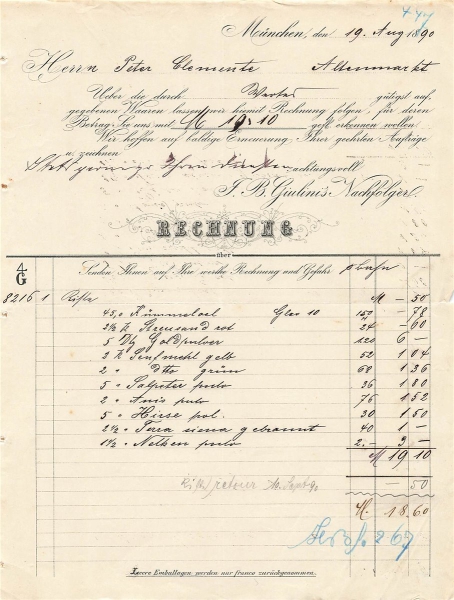 München, den 19. Aug 1890
Herrn Peter Clemente Altenmarkt
Ueber die durch Werter gütigst auf-
gegebenen Waaren lassen wir hiemit Rechnung folgen, für deren
Betrag Sie uns mit M 19.10 gefl. erkennen wollen.
Wir hoffen auf baldige Erneuerung Ihrer geehrten Aufträge
u. zeichnen
achtungsvoll
J. B. Giulini's Nachfolger
RECHNUNG
über
4/G Senden Ihnen auf Ihre werthe Rechnung und Gefahr p Bahn
8216 1 Kiste M - 50
45,0 Kümmeloel Glas 10 150 - 78
2½ ℔ Streusand rot 24 - 60
5 Dtz Goldpulver 120 6 -
2 ℔ Senfmehl gelb 52 1 04
2 " dtto grün 68 1 36
5 " Salpeter pulv 36 1 80
2 " Anis pulv 76 1 52
5 " Hirse pol. 30 1 50
2½ " Terra siena gebrannt 40 1 -
1½ " Nelken pulv 2.- 3 -
M 19 10
Kiste retour 10. Sept 90 - 50
M. 18.60
267
Leere Emballagen werden nur franco zurückgenommen.